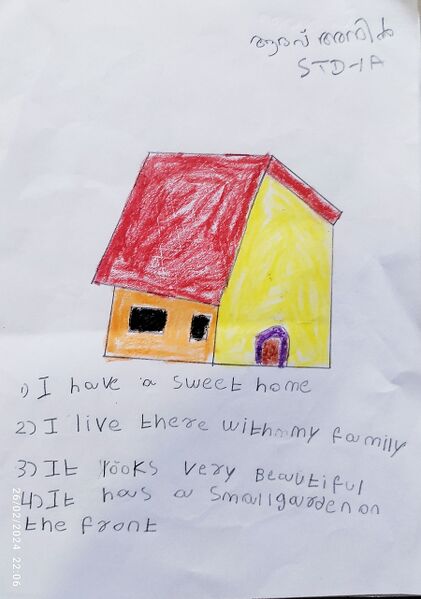 ആരവ് അനിൽ
STD-1A
1) I have a sweet home
2) I live there with my family
3) It looks very Beautiful
4) It has a small garden on
the front
26/02/2024 22:06